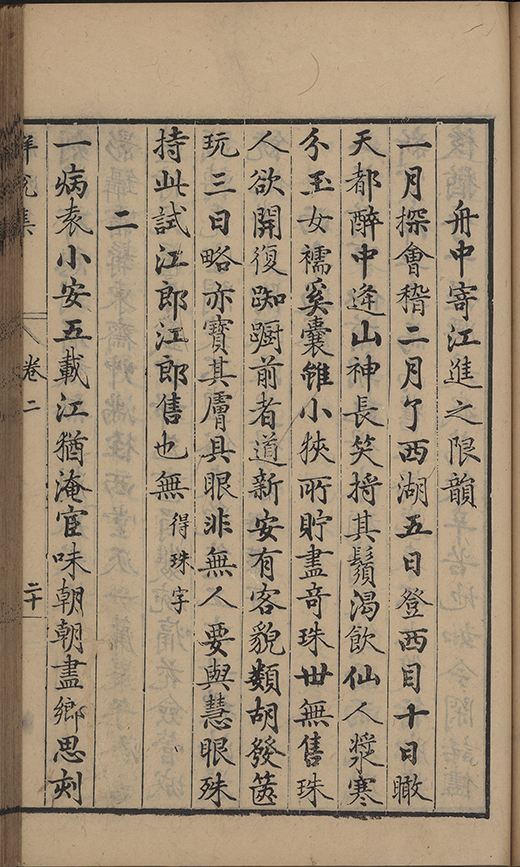 舟中寄江進之限韻
一月探會稽二月了西湖五日登西目十日瞰
天都醉中逢山神長笑捋其鬚渴飲仙人漿寒
分玉女襦奚囊雖小狹所貯盡奇珠世無售珠
人欲開復踟蹰前者道新安有客貌類胡發篋
玩三日略亦寶其膚具眼非無人要與慧眼殊
持此試江郎江郎售也無 得珠字
二
一病袁小安五載江猶淹宦味朝朝盡鄉思刻
卷二
二十